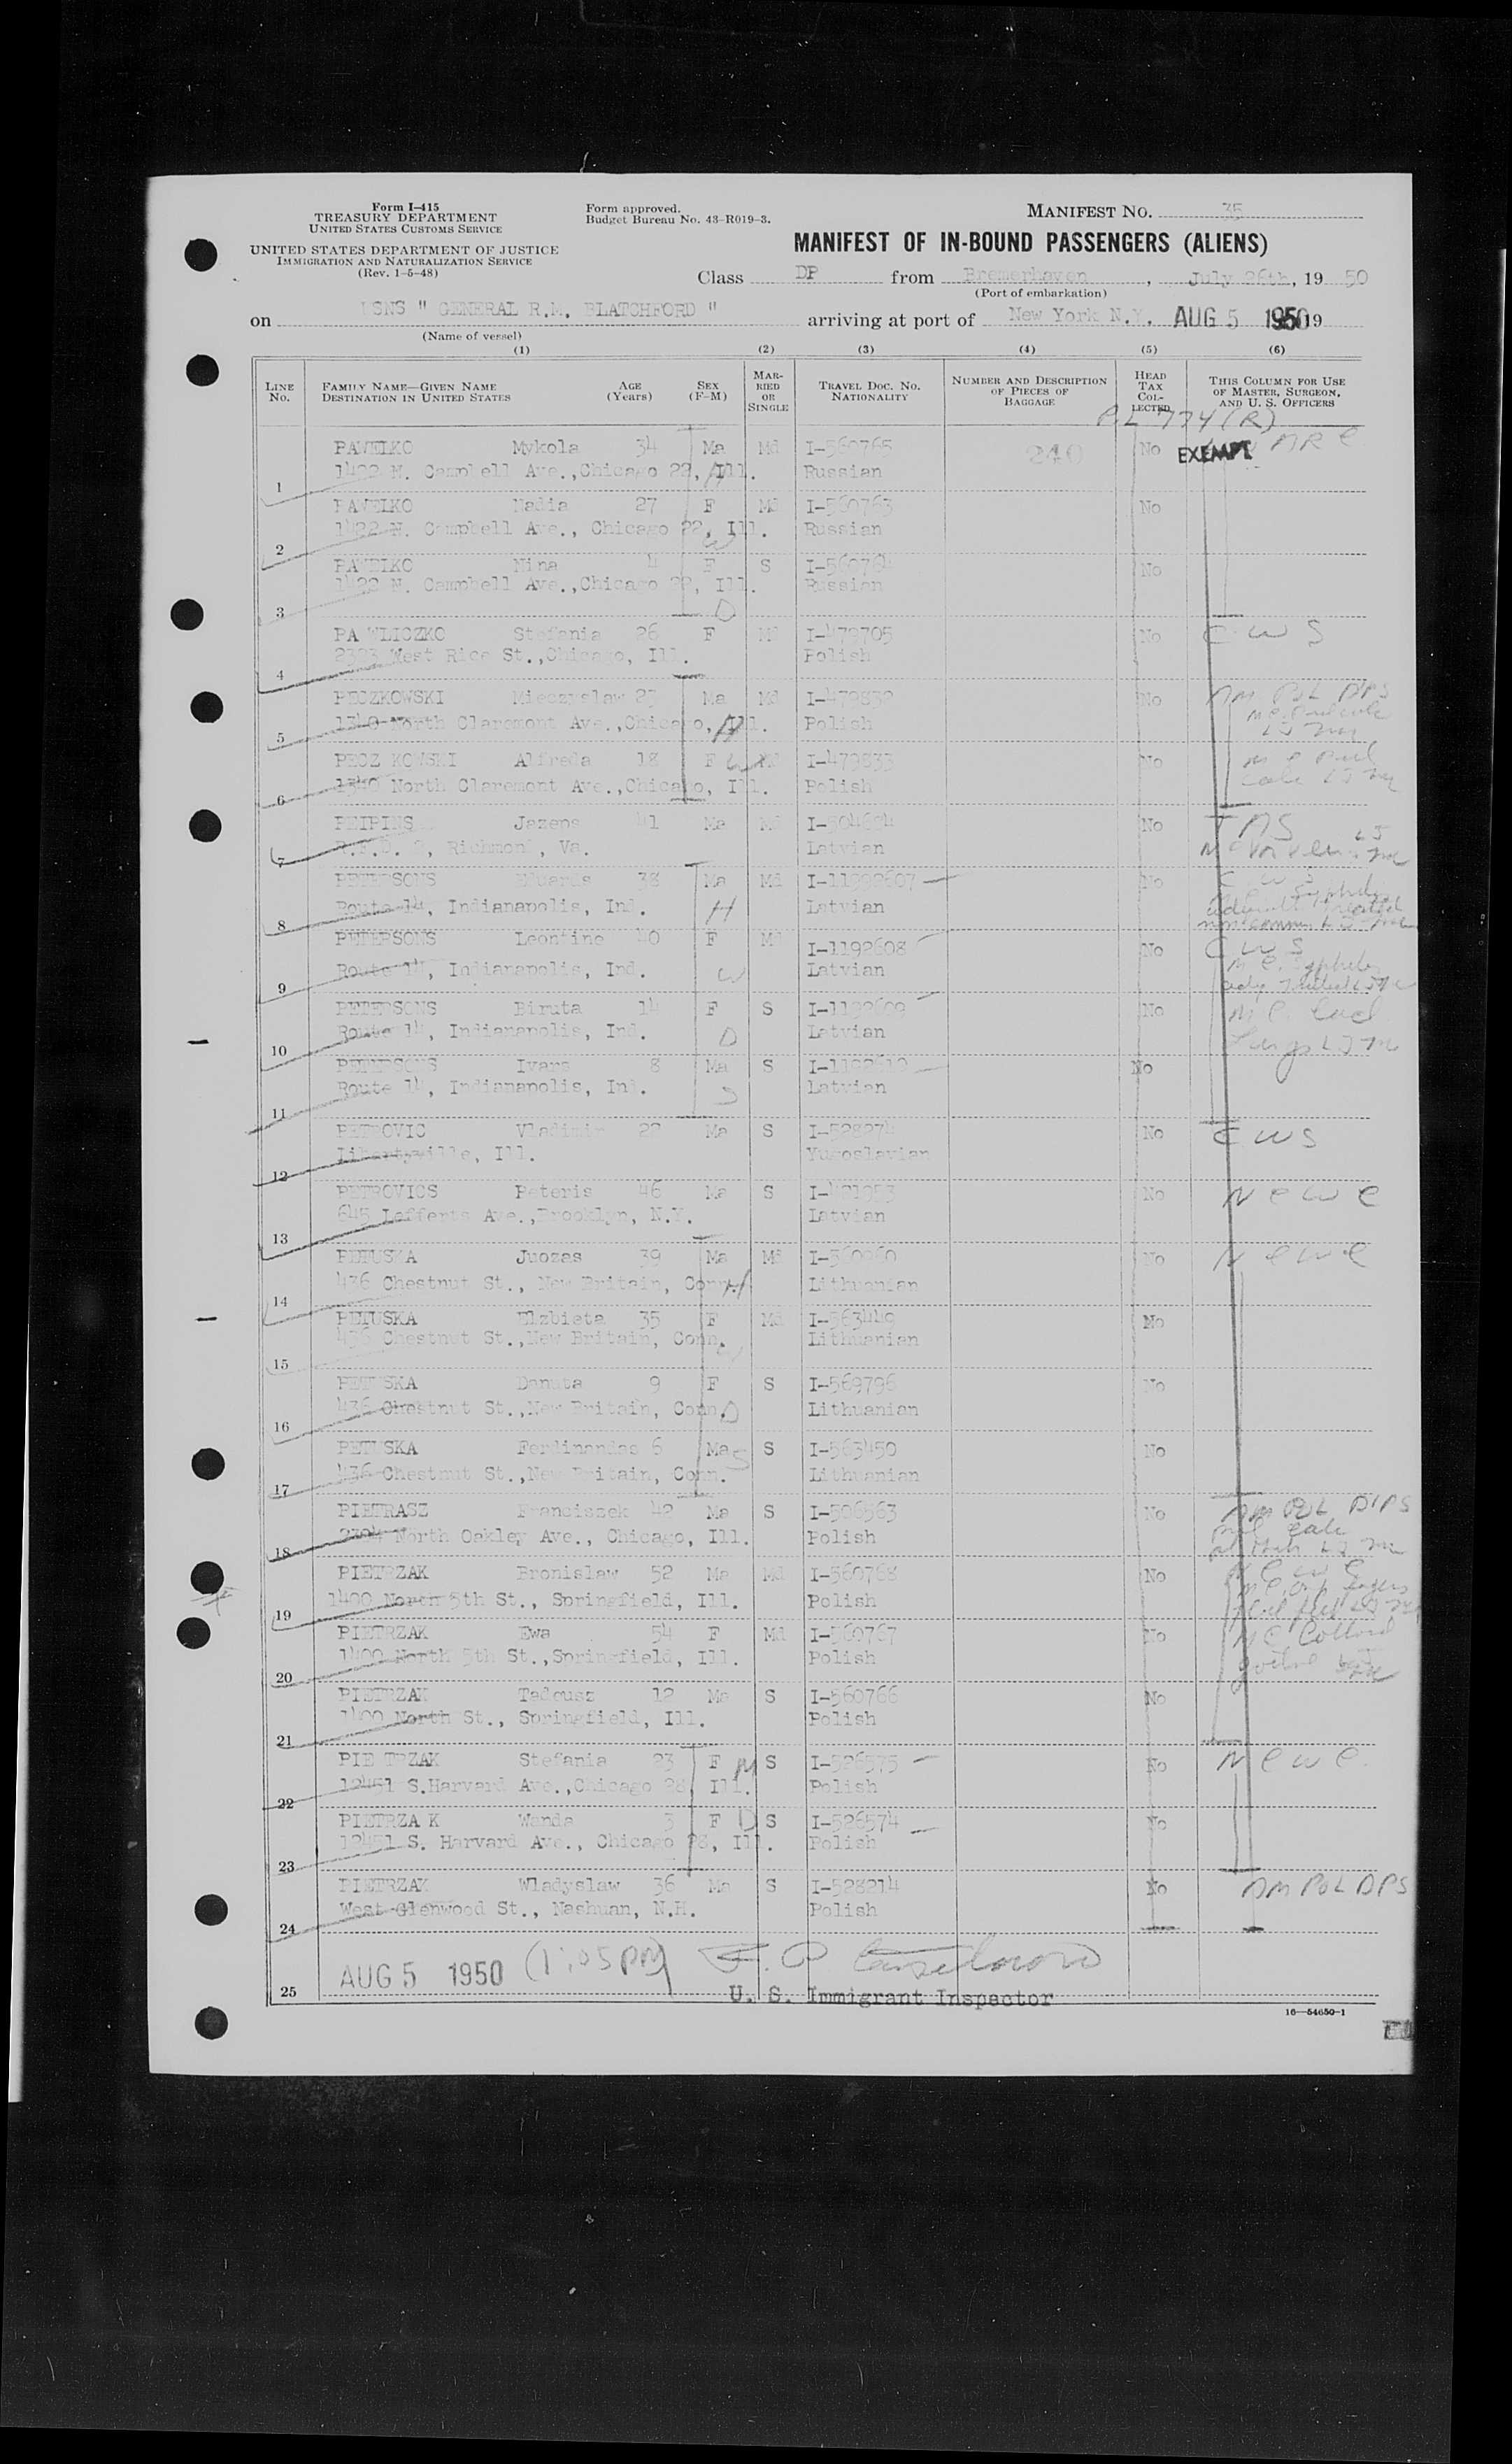 Form I-415
TREASURY DEPARTMENT
UNITED STATES CUSTOMS SERVICE
UNITED STATES DEPARTMENT OF JUSTICE
IMMIGRATION AND NATURALIZATION SERVICE
(Rev. 1-5-48)
Form approved.
Budget Bureau No. 43-R019-3.
MANIFEST NO. 35
MANIFEST OF IN-BOUND PASSENGERS (ALIENS)
Class DP from Bremerhaven, July 26th, 19 50
(Port of embarkation)
on USNS " GENERAL R.M. BLATCHFORD " arriving at port of New York N.Y. AUG 5 1950 19
(Name of vessel)
(1) (2) (3) (4) (5) (6)
LINE NO. FAMILY NAME—GIVEN NAME DESTINATION IN UNITED STATES AGE (Years) SEX (F-M) MARRIED OR SINGLE TRAVEL DOC. NO. NATIONALITY NUMBER AND DESCRIPTION OF PIECES OF BAGGAGE HEAD TAX COLLECTED THIS COLUMN FOR USE OF MASTER, SURGEON, AND U. S. OFFICERS
PL 774 (R)
PAWELKO Mykola 34 Ma Md I-560765 240 No EXEMPT
1 1422 N. Campbell Ave.,Chicago 22, Ill. Russian H
PAWELKO Nadia 27 F Md I-560763 No
2 1422 N. Campbell Ave., Chicago 22, Ill. Russian W
PAWELKO Nina 4 F S I-560764 No
3 1422 N. Campbell Ave.,Chicago 22, Ill. Russian D
PAWLICZKO Stefania 26 F Md I-479705 No C W S
4 2323 West Rice St.,Chicago, Ill. Polish
PECZKOWSKI Mieczyslaw 27 Ma Md I-479832 No AM POL DPS
5 1340 North Claremont Ave.,Chicago, Ill. Polish H
PECZ KOWSKI Alfreda 18 F W Md I-479833 No
6 1340 North Claremont Ave.,Chicago, Ill. Polish
PEIPINS Jazeps 41 Ma Md I-504694 No
7 R.F.D. 2, Richmond, Va. Latvian
PETERSONS Eduards 38 Ma Md I-11392607 No C W S
8 Route 14, Indianapolis, Ind. H Latvian
PETERSONS Leontine 40 F Md I-1192608 No C W S
9 Route 14, Indianapolis, Ind. W Latvian
PETERSONS Biruta 14 F S I-1192609 No
10 Route 14, Indianapolis, Ind. D Latvian
PETERSONS Ivars 8 Ma S I-1192610 No
11 Route 14, Indianapolis, Ind. S Latvian
PETROVIC Vladimir 22 Ma S I-528274 No C W S
12 Libertyville, Ill. Yugoslavian
PETROVICS Peteris 46 Ma S I-421953 No N C W C
13 645 Lefferts Ave.,Brooklyn, N.Y. Latvian
PETUSKA Juozas 39 Ma Md I-560060 No N C W C
14 436 Chestnut St., New Britain, Conn. H Lithuanian
PETUSKA Elzbieta 35 F Md I-563449 No
15 436 Chestnut St.,New Britain, Conn. W Lithuanian
PETUSKA Danuta 9 F S I-569796 No
16 436 Chestnut St.,New Britain, Conn. D Lithuanian
PETUSKA Ferdinandas 6 Ma S S I-563450 No
17 436 Chestnut St.,New Britain, Conn. Lithuanian
PIETRASZ Franciszek 42 Ma S I-506563 No AM POL DPS
18 2304 North Oakley Ave., Chicago, Ill. Polish
PIETRZAK Bronislaw 52 Ma Md I-560768 No N C W C
19 1400 North 5th St., Springfield, Ill. Polish
PIETRZAK Ewa 54 F Md I-560767 No
20 1400 North 5th St.,Springfield, Ill. Polish
PIETRZAK Tadeusz 12 Ma S I-560766 No
21 1400 North St., Springfield, Ill. Polish
PIE TRZAK Stefania 23 F M S I-526575 No N C W C
22 12451 S.Harvard Ave.,Chicago 28, Ill. Polish
PIETRZA K Wanda 3 F D S I-526574 No
23 12451 S. Harvard Ave., Chicago 28, Ill. Polish
PIETRZAK Wladyslaw 36 Ma S I-528214 No AM POL DPS
24 West Glenwood St., Nashuan, N.H. Polish
25 AUG 5 1950 (1:05 PM)
U. S. Immigrant Inspector
16—54650-1